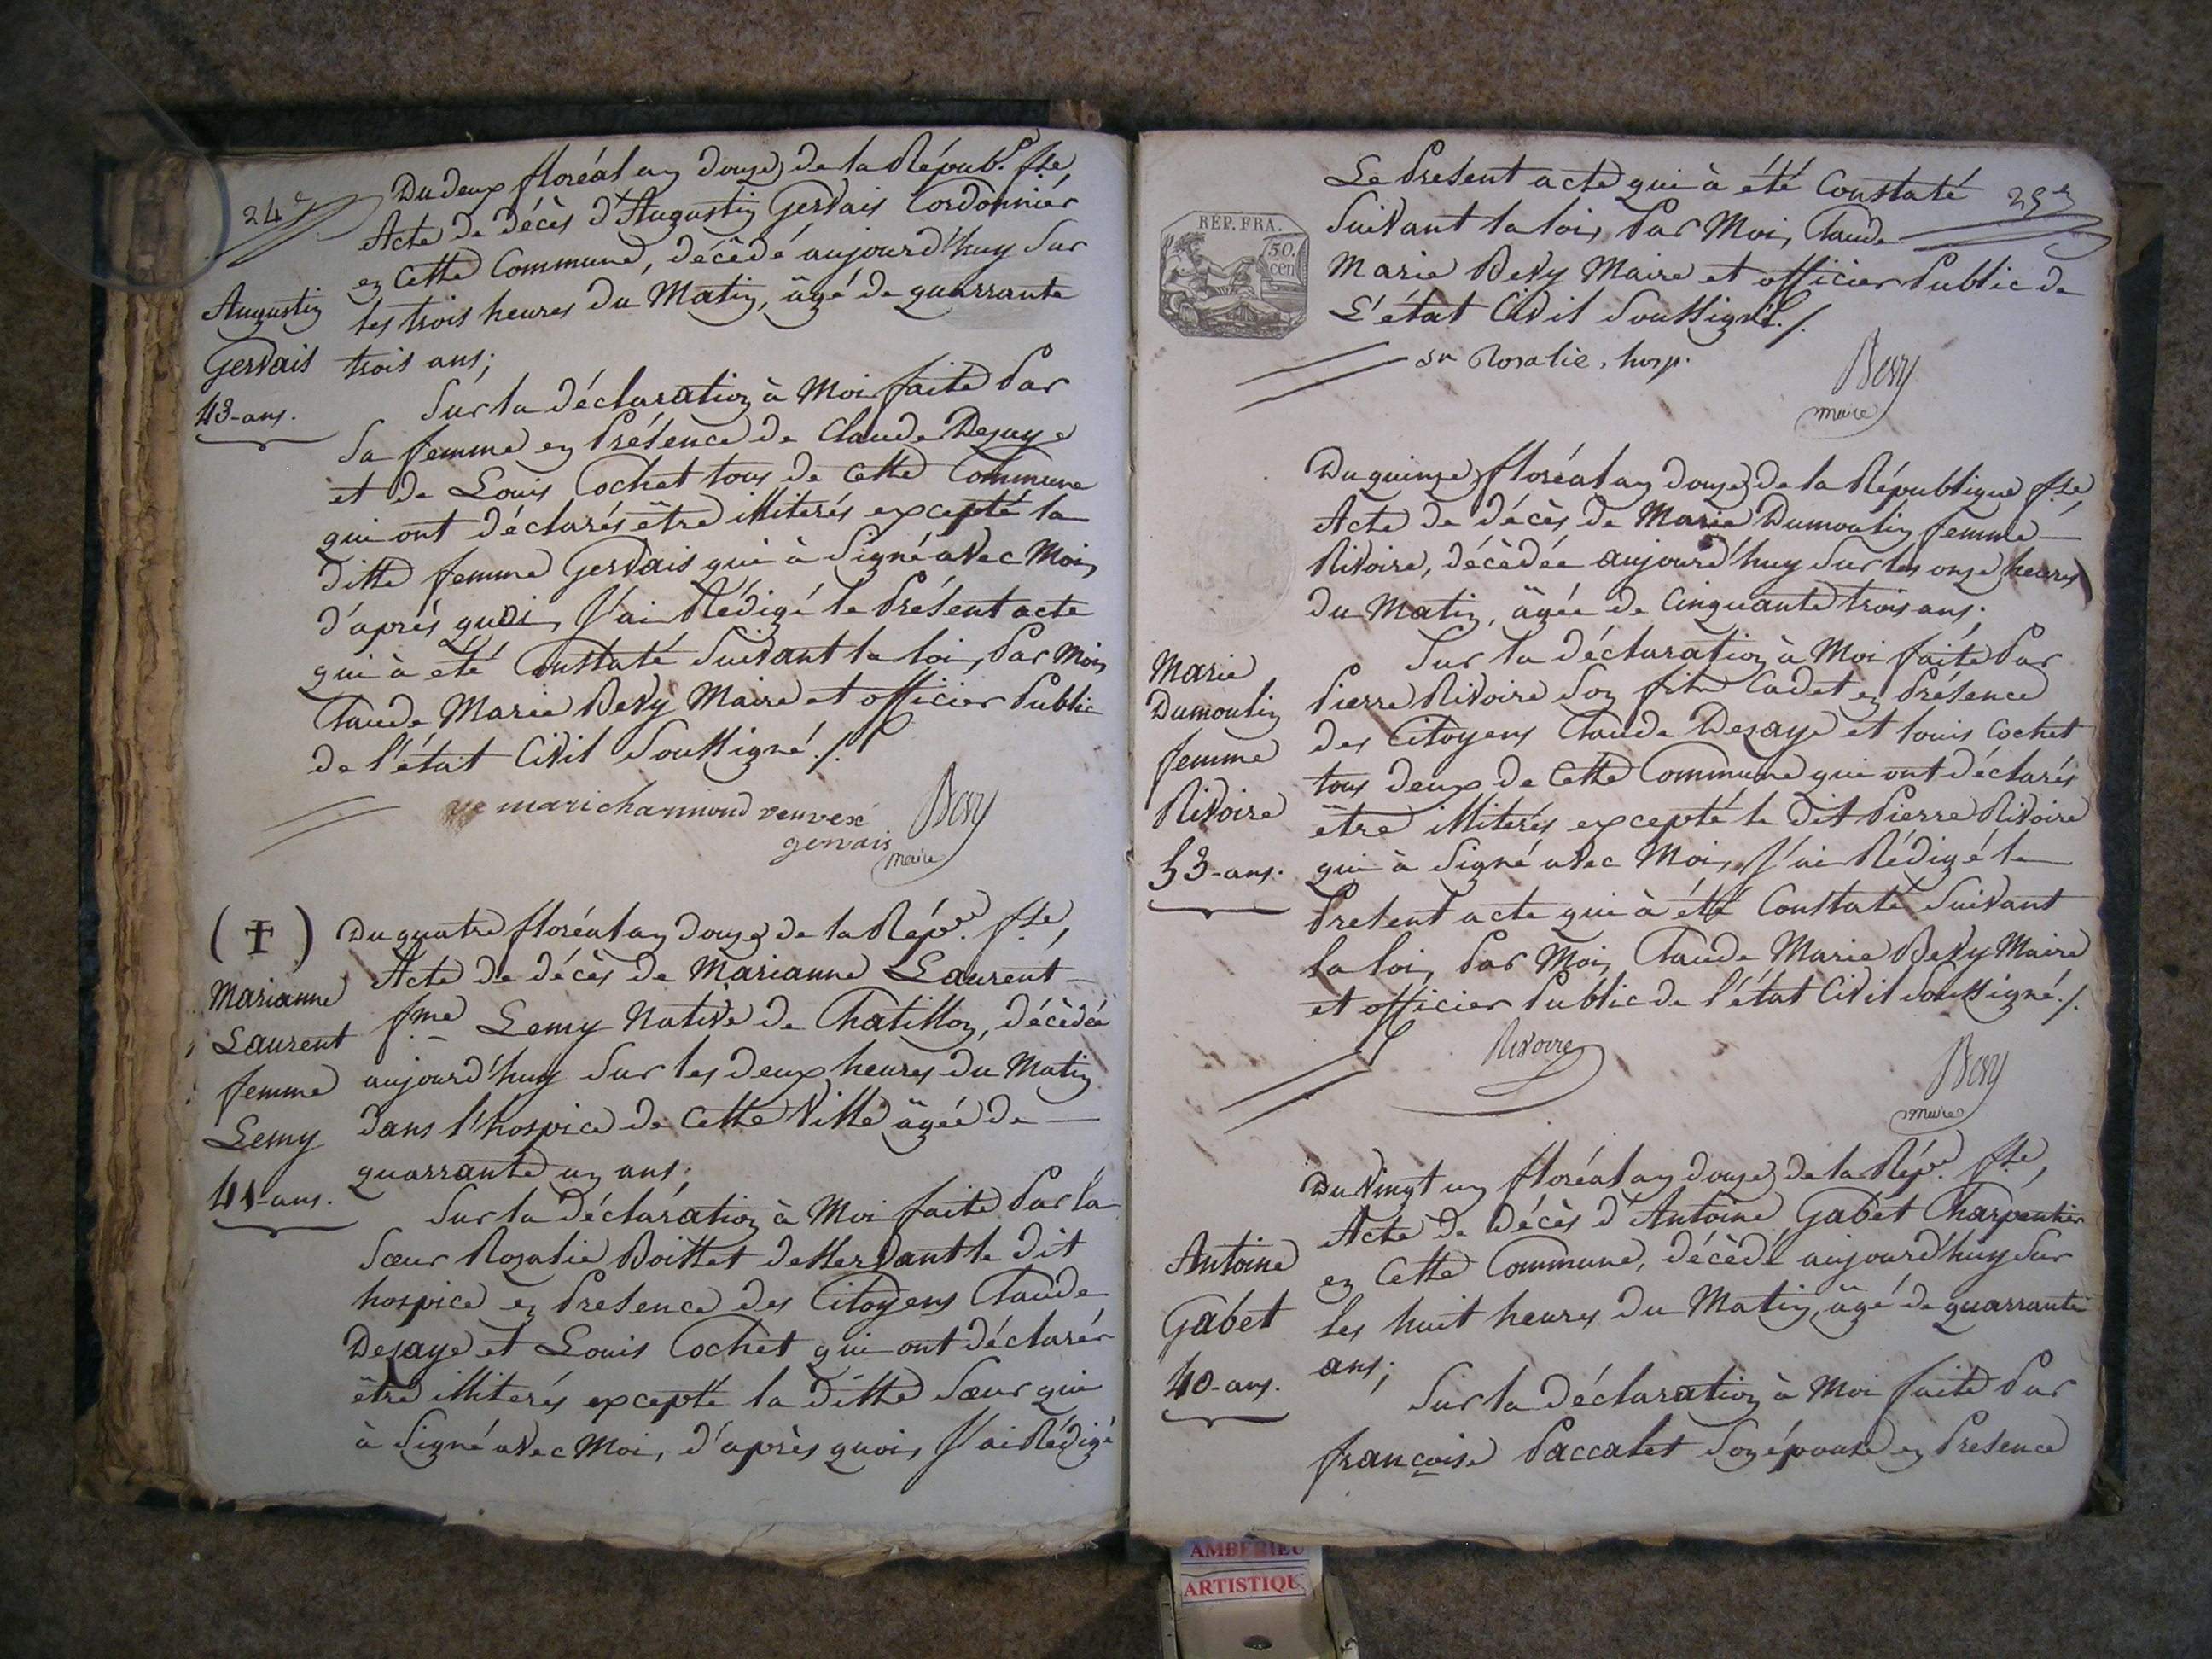 24e
Du deux floréal an douze de la Répub. fse,
Acte de décès d'Augustin Gervais Cordonnier
en Cette Commune, décèdé aujourd'huy Sur
les trois heures du Matin, âgé de quarrante
trois ans;
Augustin
Gervais
43-ans.
Sur la déclaration à Moi faite Par
Sa femme en Présence de Claude Dezaye
et de Louis Cochet tous de Cette Commune
qui ont déclarés être illiterés excepté la
ditte femme Gervais qui à Signé avec Moi,
d'après quoi, J'ai Rédigé le Présent acte
qui à été Constaté Suivant la loi, Par Moi,
Claude Marie Bevy Maire et officier Public
de l'état Civil Soussigné./.
marichamond veuve
gervais
Bevy
maire
(✝)
Du quatre floréal an douze de la Rép. fse,
Acte de décès de Marianne Laurent
fme Lemy Native de Chatillon, décèdée
aujourd'huy Sur les deux heures du Matin
dans l'hospice de Cette Ville âgée de
quarrante un ans;
Marianne
Laurent
femme
Lemy
41-ans.
Sur la déclaration à Moi faite Par la
Sœur Rozalie Boittet desservant le dit
hospice en Presence des Citoyens Claude
Dezaye et Louis Cochet qui ont déclarés
être illiterés excepté la ditte Sœur qui
à Signé avec Moi, d'après quoi, J'ai Rédigé
25e
Le Present acte qui à été Constaté
Suivant la loi, Par Moi, Claude
Marie Bevy Maire et officier Public de
L'état Civil Soussigné./.
REP. FRA.
50.
cen
sr Rosalie, hosp.
Bevy
maire
Du quinze floréal an douze de la République fse,
Acte de décès de Marie Dumoulin femme
Rivoire, décèdée aujourd'huy Sur les onze heures
du Matin, âgée de Cinquante trois ans;
Marie
Dumoulin
femme
Rivoire
53-ans.
Sur la déclaration à Moi faite Par
Pierre Rivoire Son fils Cadet en Présence
des Citoyens Claude Dezaye et louis Cochet
tous deux de Cette Commune qui ont déclarés
être illiterés excepté le dit Pierre Rivoire
qui à Signé avec Moi, J'ai Rédigé le
Present acte qui à été Constaté Suivant
la loi, Par Moi, Claude Marie Bevy Maire
et officier Public de l'état Civil Soussigné./.
Rivoire
Bevy
maire
Du Vingt un floréal an douze de la Rép. fse,
Acte de Décès d'Antoine Gabet Charpentier
en Cette Commune, décèdé aujourd'huy Sur
les huit heures du Matin, âgé de quarrante
ans;
Antoine
Gabet
40-ans.
Sur la déclaration à Moi faite Par
françoise Paccalet Son épouse en Presence
AMBERIEU
ARTISTIQU